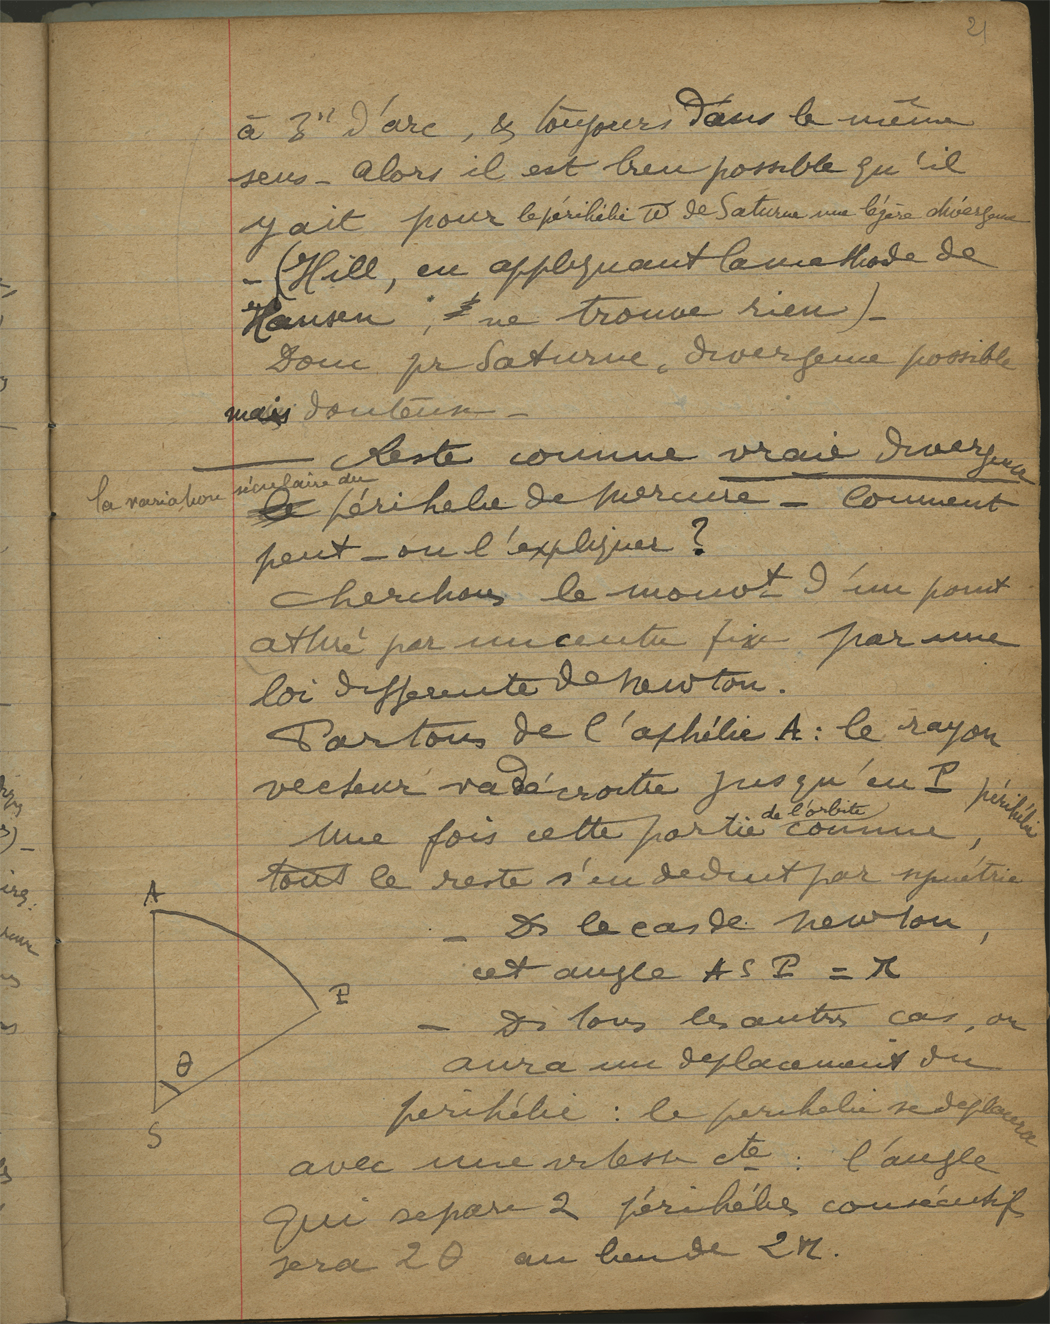 21
à 3" d'arc, & toujours dans le même
sens - alors il est bien possible qu'il
y ait pour le périhélie ϖ de Saturne une légère divergence
- (Hill, en appliquant la methode de
Hansen, ne trouve rien) -
Donc pr Saturne, divergence possible
mais douteuse -
Reste comme vraie divergence
la variation séculaire du
le périhelie de Mercure - Comment
peut-on l'expliquer ?
Cherchons le mouvt d'un point
attiré par un centre fixe par une
loi differente de Newton.
Partons de l'aphélie A : le rayon
vecteur va décroitre jusqu'en P périhélie
Une fois cette partie de l'orbite connue,
tout le reste s'en deduit par symétrie
- Ds le cas de Newton,
cet angle A S P = π
- Ds tous les autres cas, on
aura un deplacement du
périhélie : le perihelie se deplacera
avec une vitesse cte : l'angle
qui separe 2 périhélies consécutifs
sera 2 θ au lieu de 2π.
A
P
θ
S